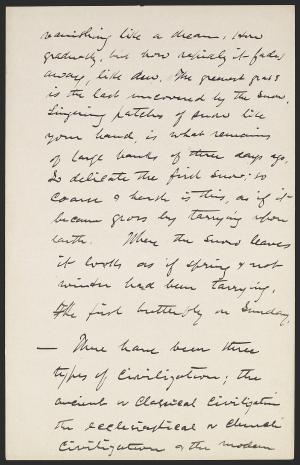 vanishing like a dream. How
gradually, but how rapidly it fades
away, like dew. The greenest grass
is the last uncovered by the snow.
Lingering patches of snow like
your hand, is what remains
of large banks of three days ago.
So delicate the first snow; so
coarse & harsh is this, as if it
became gross by tarrying upon
earth. Where the snow leaves
it looks as if spring & not
winter had been tarrying.
The first butterfly on Sunday.
— There have been three
types of Civilization; the
ancient or Classical Civilization
the ecclesiastical or Church
Civilization & the modern